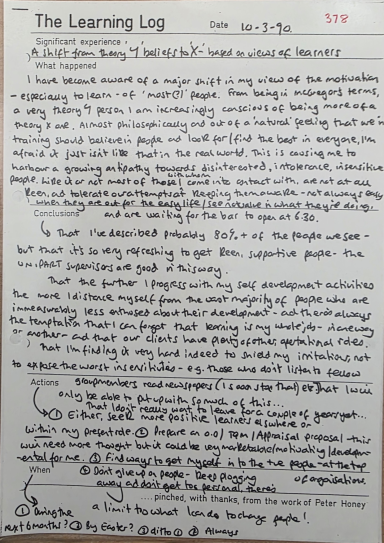 The Learning Log Date 10-3-90. 378
Significant experience
A shift from theory 'Y' beliefs to X - based on views of learners
What happened
I have become aware of a major shift in my view of the motivation
- especially to learn - of 'most(!)' people. From being in McGregor's terms,
a very theory Y person I am increasingly conscious of being more of a
theory X one. Almost philosophically and out of a 'natural' feeling that we in
training should believe in people and look for/find the best in everyone, I'm
afraid it just isn't like that in the real world. This is causing me to
harbour a growing antipathy towards disinterested, intolerance, insensitive
people. Like it or not most of those I come into contact with are not at all
keen, and tolerate our attempts at keeping them awake - not always easy
when they are out for the easy life/see no value in what they're doing,
Conclusions and are waiting for the bar to open at 6.30.
That I've described probably 80% + of the people we see -
but that it's so very refreshing to get keen, supportive people - the
UN.PART supervisors are good in this way.
That the further I progress with my self development activities
the more I distance myself from the vast majority of people who are
immeasurably less enthused about their development - and there's always
the temptation that I can forget that learning is my whole job - in one way
or another - and that our clients have plenty of other, operational roles.
That I'm finding it very hard indeed to shield my irritations, not
to expose the worst insensitivities - e.g. those who don't listen to fellow
Actions group members read newspapers (I soon stop that) etc. That I will
only be able to put up with so much of this...
That I don't really want to leave for a couple of years yet...
① Either, seek more positive learners elsewhere or
within my present role. ② Prepare an O.D / TQM / Appraisal proposal - this
will need more thought but it could be very marketable/motivating/develop-
mental for me. ③ Find ways to get myself in to the people at the top
When ④ Don't give up on people - keep plugging of organisations.
away and don't get too personal, there's
....pinched, with thanks, from the work of Peter Honey
① During the a limit to what I can do to change people!
next 6 months? ② By Easter? ③ ditto ① ④ Always